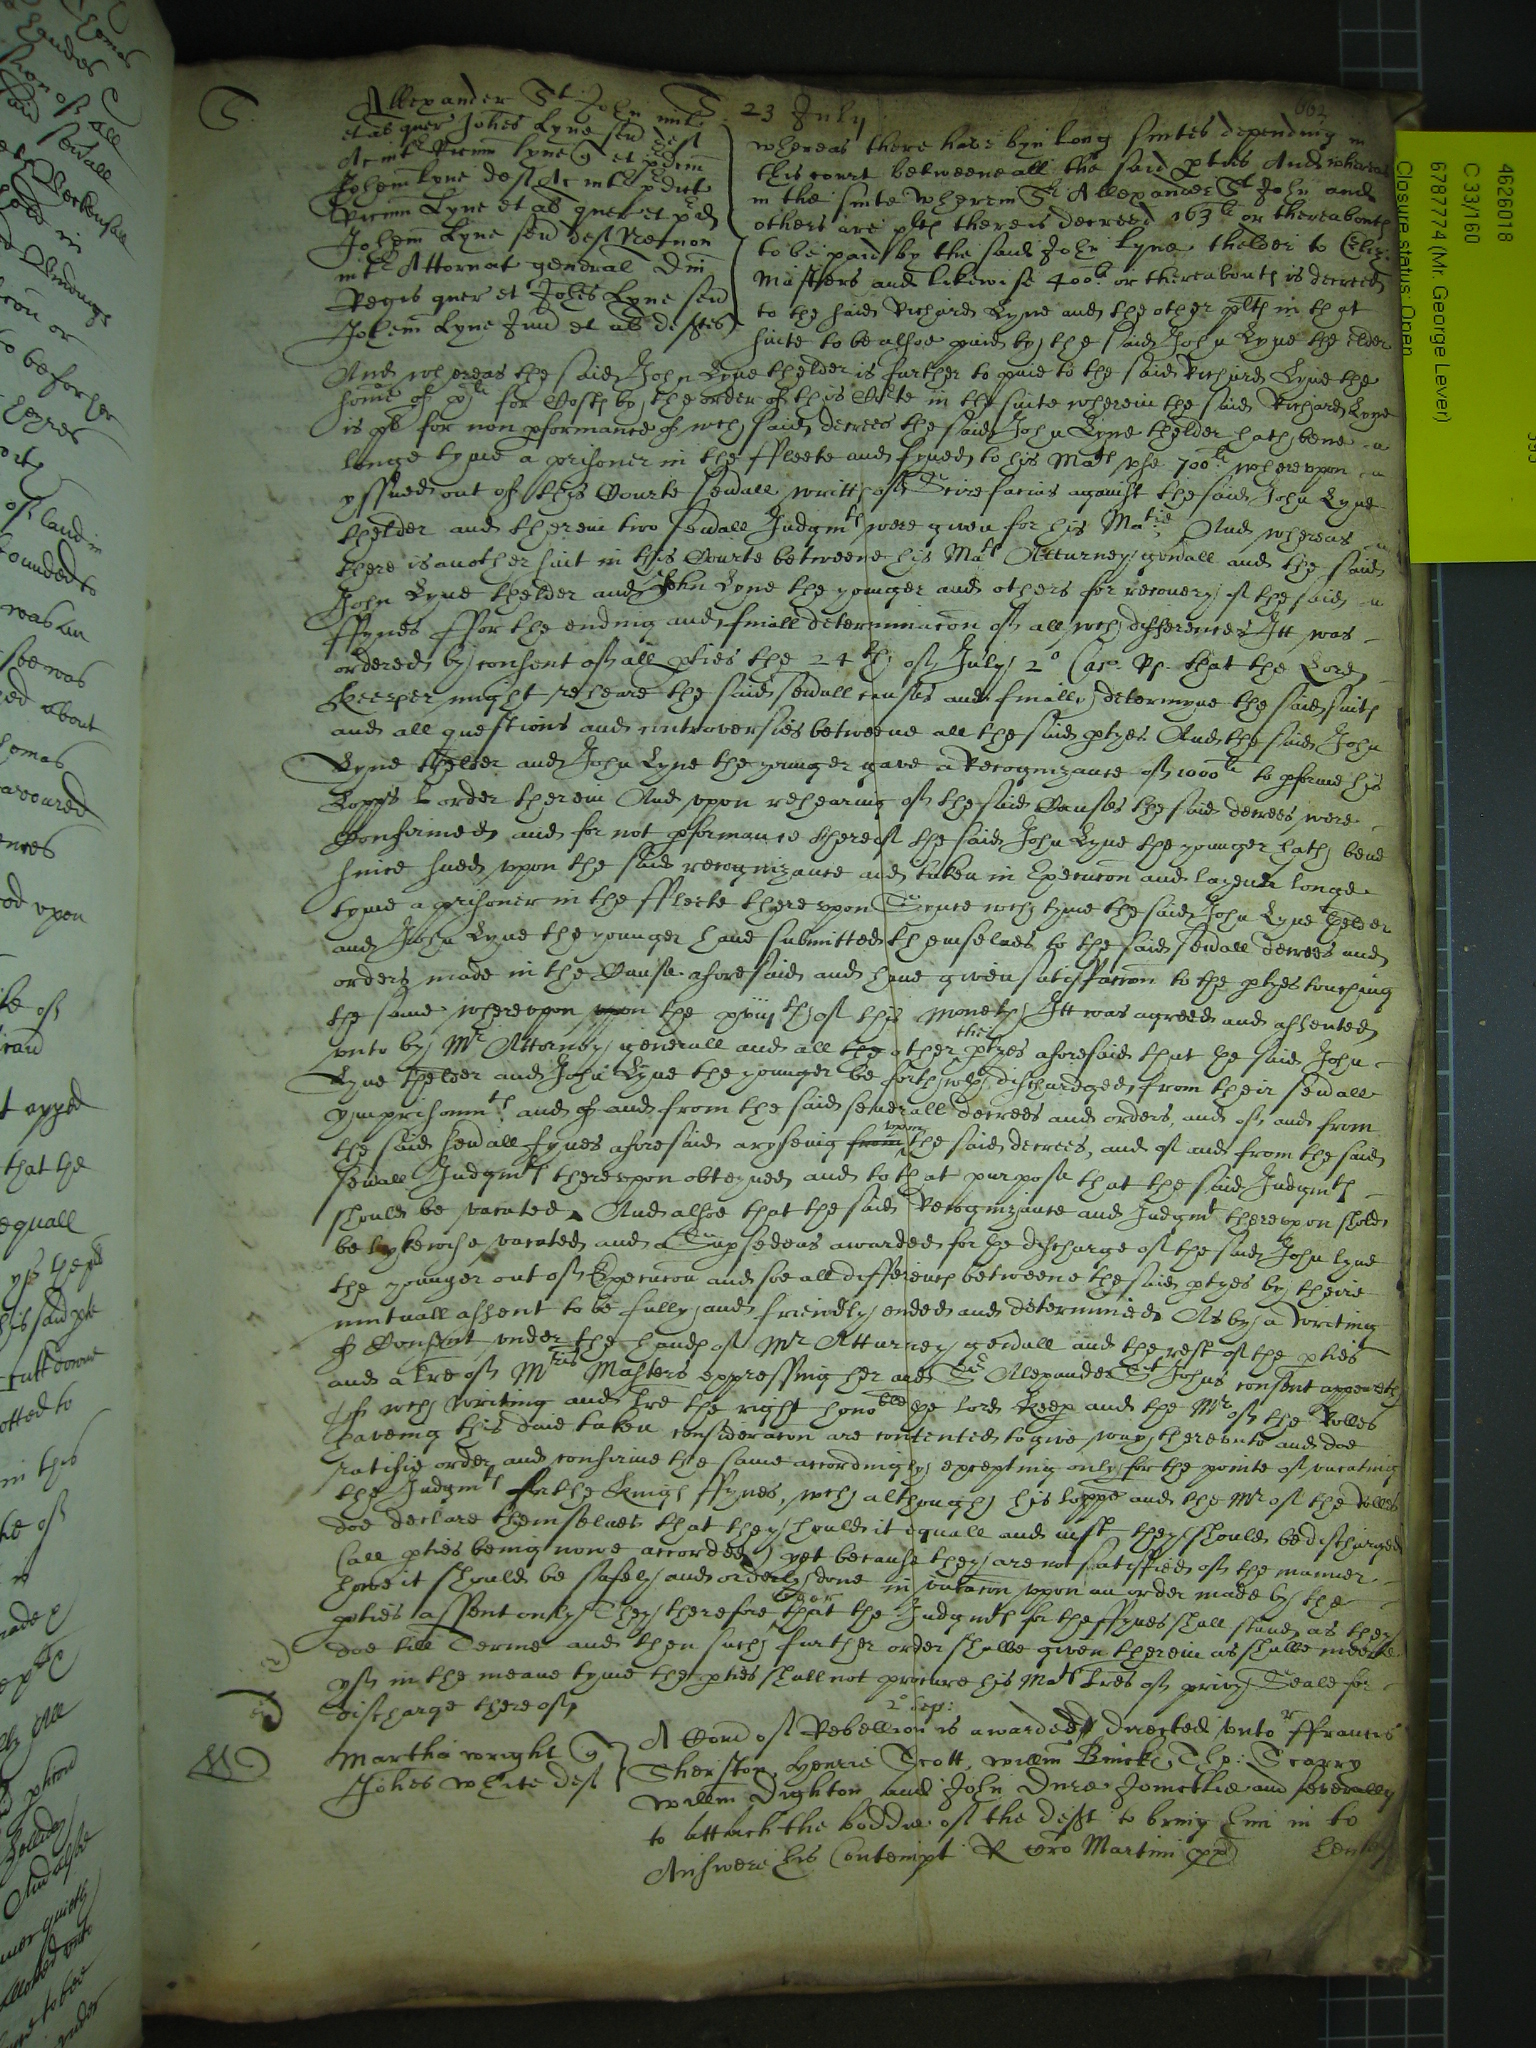 662
S
Allexander St John mil
et al quer Johes Lyne sen def
Ac int Ricum Lyne q et pdcm
Johem Lyne def Ac int pdict
Ricum Lyne et al quer et pd
Johem Lyne sen def Necnon
int Attornat general Dni
Regis quer et Johes Lyne sen
Johem Lyne Jun et al deftes
23 July
whereas there have byn long suites depending in
this court betweene all the said pties And whereas
in the suite wherein Sr Allexander St John and
others are plts there is decreed 163li or thereabouts
to be paid by the said John Lyne thelder to Eliz:
Masters and likewise 400li or thereabouts is decreed
to the said Richard Lyne and the other plts in that
suite to be alsoe paid by the said John Lyne the elder
And whereas the said John Lyne thelder is further to paie to the said Richard Lyne the
some of xli for Costs by the order of this Corte in the suite wherein the said Richard Lyne
is pl for non pformance of wch said decrees the said John Lyne thelder hath bene a
longe tyme a prisoner in the Fleete and fyned to his Mats use 700li whereupon
yssued out of this Courte sevall writts of Scire facias against the said John Lyne
thelder and therein two sevall Judgmts were given for his Matie And whereas
there is another suit in this Courte betweene his Mats Atturney genall and the said
John Lyne thelder and John Lyne the younger and others for recovery of the said
ffynes ffor the ending and finall determinacon of all wch differences Itt was
ordered by consent of all pties the 24th of July 2o Car. Rs. that the Lord
Keeper might reheare the said sevall causes and finally determyne the said suits
and all questions and controversies betweene all the said ptyes And the said John
Lyne thelder and John Lyne the younger gave a Recognizance of 1000li to pforme his
Lopps order therein And uppon rehearing of the said Causes the said decrees were
Confirmed and for not pformance thereof the said John Lyne the younger hath bene
since sued uppon the said recognizance and taken in Execucon and layen a longe
tyme a prisoner in the ffleete thereuppon Synce wch tyme the said John Lyne thelder
and John Lyne the younger have submitted themselves to the said sevall decrees and
orders made in the Cause aforesaid and have given satisfaccon to the ptyes touching
the same whereupon upon the xviijth of this moneth Itt was agreed and assented
unto by Mr Attorney generall and all the other the ptyes aforesaid that the said John
Lyne thelder and John Lyne the younger be forthwth dischardged from their sevall
ymprisonmts and of and from the said severall decrees and orders, and of and from
the said sevall fynes aforesaid aryseing from upon the said decrees, and of and from the said
sevall Judgmts thereupon obteyned and to that purpose that the said Judgmts
should be vacated And alsoe that the said Recognizance and Judgmt thereupon shold
be lykewise vacated and a Supsedeas awarded for the discharge of the said John Lyne
the younger out of Execucon and soe all differences betweene the said ptyes by theire
mutuall assent to be fully and friendly ended and determined As by a writing
of Consent under the hands of Mr Atturney genall and the rest of the pties
and a tre of Mris Masters expressing her and Sr Alexander St Johns consent appeareth
Of wch writing and tre the right honoble the Lord Keep and the Mr of the Rolles
haveing this daie taken consideracon are contented to give way thereunto and doe
ratifie order and confirme the same accordingly excepting only for the pointe of vacating
the Judgmts for the Kings ffynes, wch although his Lopp and the Mr of the Rolles
doe declare themselves that they hould it equall and iust they should be discharged
(all pties being nowe accorded) yet because they are not satisfied of the manner
howe it should be safely and orderly done in vacacon uppon an order made by the
pties assent only They therefore order that the Judgmts for the ffynes shall stand as they
doe till Terme and then such further order shalbe given therein as shalbe meete
yf in the meane tyme the pties shall not procure his Mats tres of privy Seale for
discharge thereof
M
Martha Wright q
Johes White def
2o Sep:
A Com of Rebellion is awarded directed unto ffrancis
Sherston, Henrie Scott, Willm
Willm Dighton and John Dure Joinctlie and severally
to attach the boddie of the deft to bring him in to
Answere his Contempt R cro Martini
4626018
C 33/1160
6787774 (Mr. George Lever)
Closure status: Open